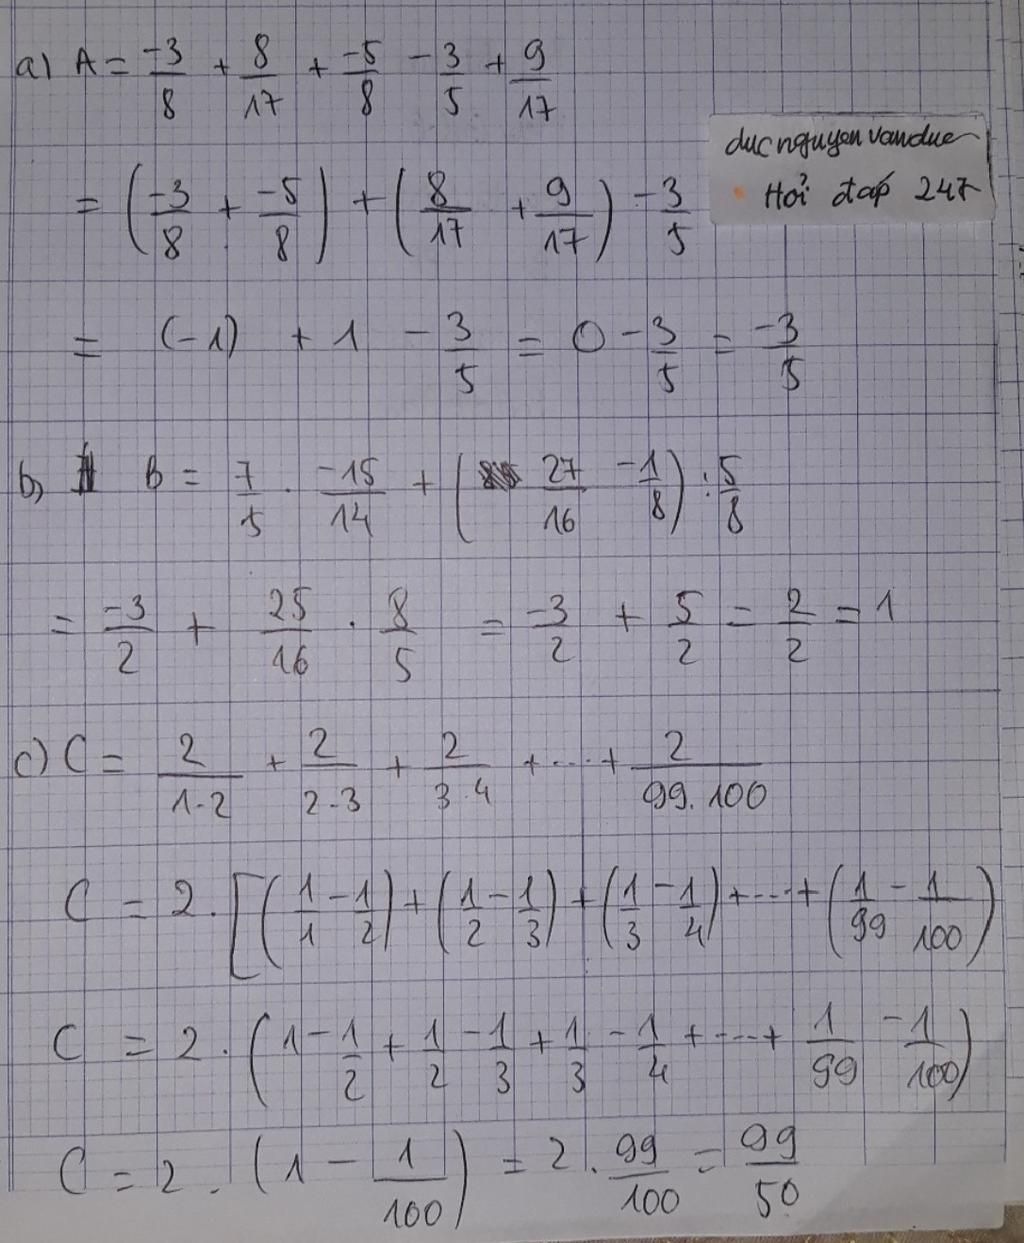 a) A = -3/8 + 8/17 + -5/8 - 3/5 + 9/17
ducnguyenvanduc
Hỏi đáp 247
= (-3/8 + -5/8) + (8/17 + 9/17) - 3/5
= (-1) + 1 - 3/5 = 0 - 3/5 = -3/5
b) B = 7/5 . -15/14 + (27/16 - 1/8) : 5/8
= -3/2 + 25/16 . 8/5 = -3/2 + 5/2 = 2/2 = 1
c) C = 2/1.2 + 2/2.3 + 2/3.4 + ... + 2/99.100
C = 2 . [(1/1 - 1/2) + (1/2 - 1/3) + (1/3 - 1/4) + ... + (1/99 - 1/100)
C = 2 . (1 - 1/2 + 1/2 - 1/3 + 1/3 - 1/4 + ... + 1/99 - 1/100)
C = 2 . (1 - 1/100) = 2 . 99/100 = 99/50